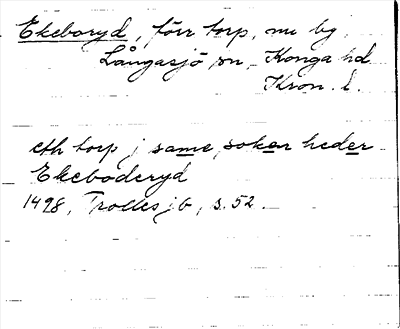 Ekeboryd, förr torp, nu bg,
Långasjö sn, Konga hd
Kron. l.
eth torp j same soken heder
Ekeboderyd
1498, Trolles jb, s. 52